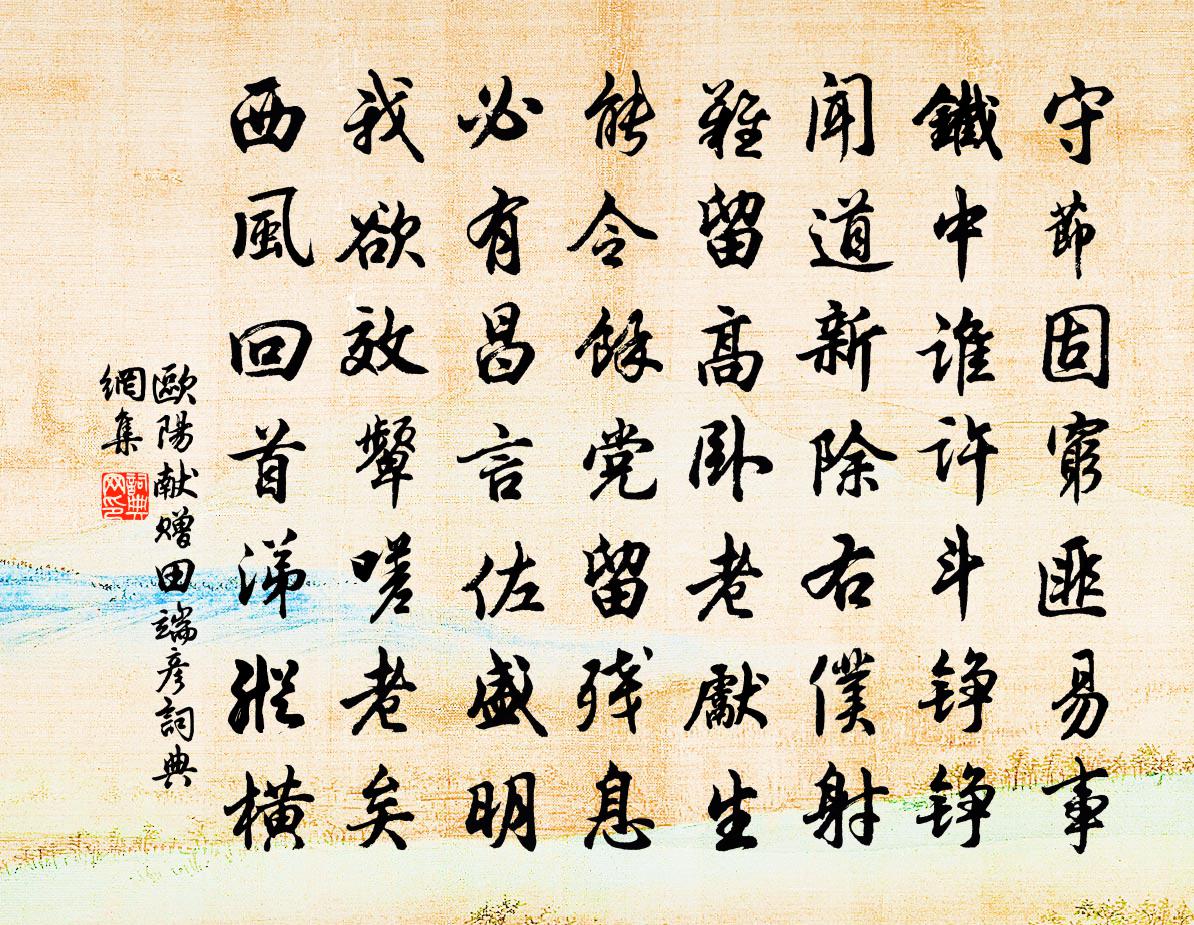 守節固窮匪易事
鐵中谁許斗铮铮
聞道新除右僕射
難留高卧老獻生
能令餘党留残息
必有昌言佐盛明
我欲效颦嗟老矣
西風回首涕縱橫
歐陽献赠田端彦詞典
網集
詞典
网印